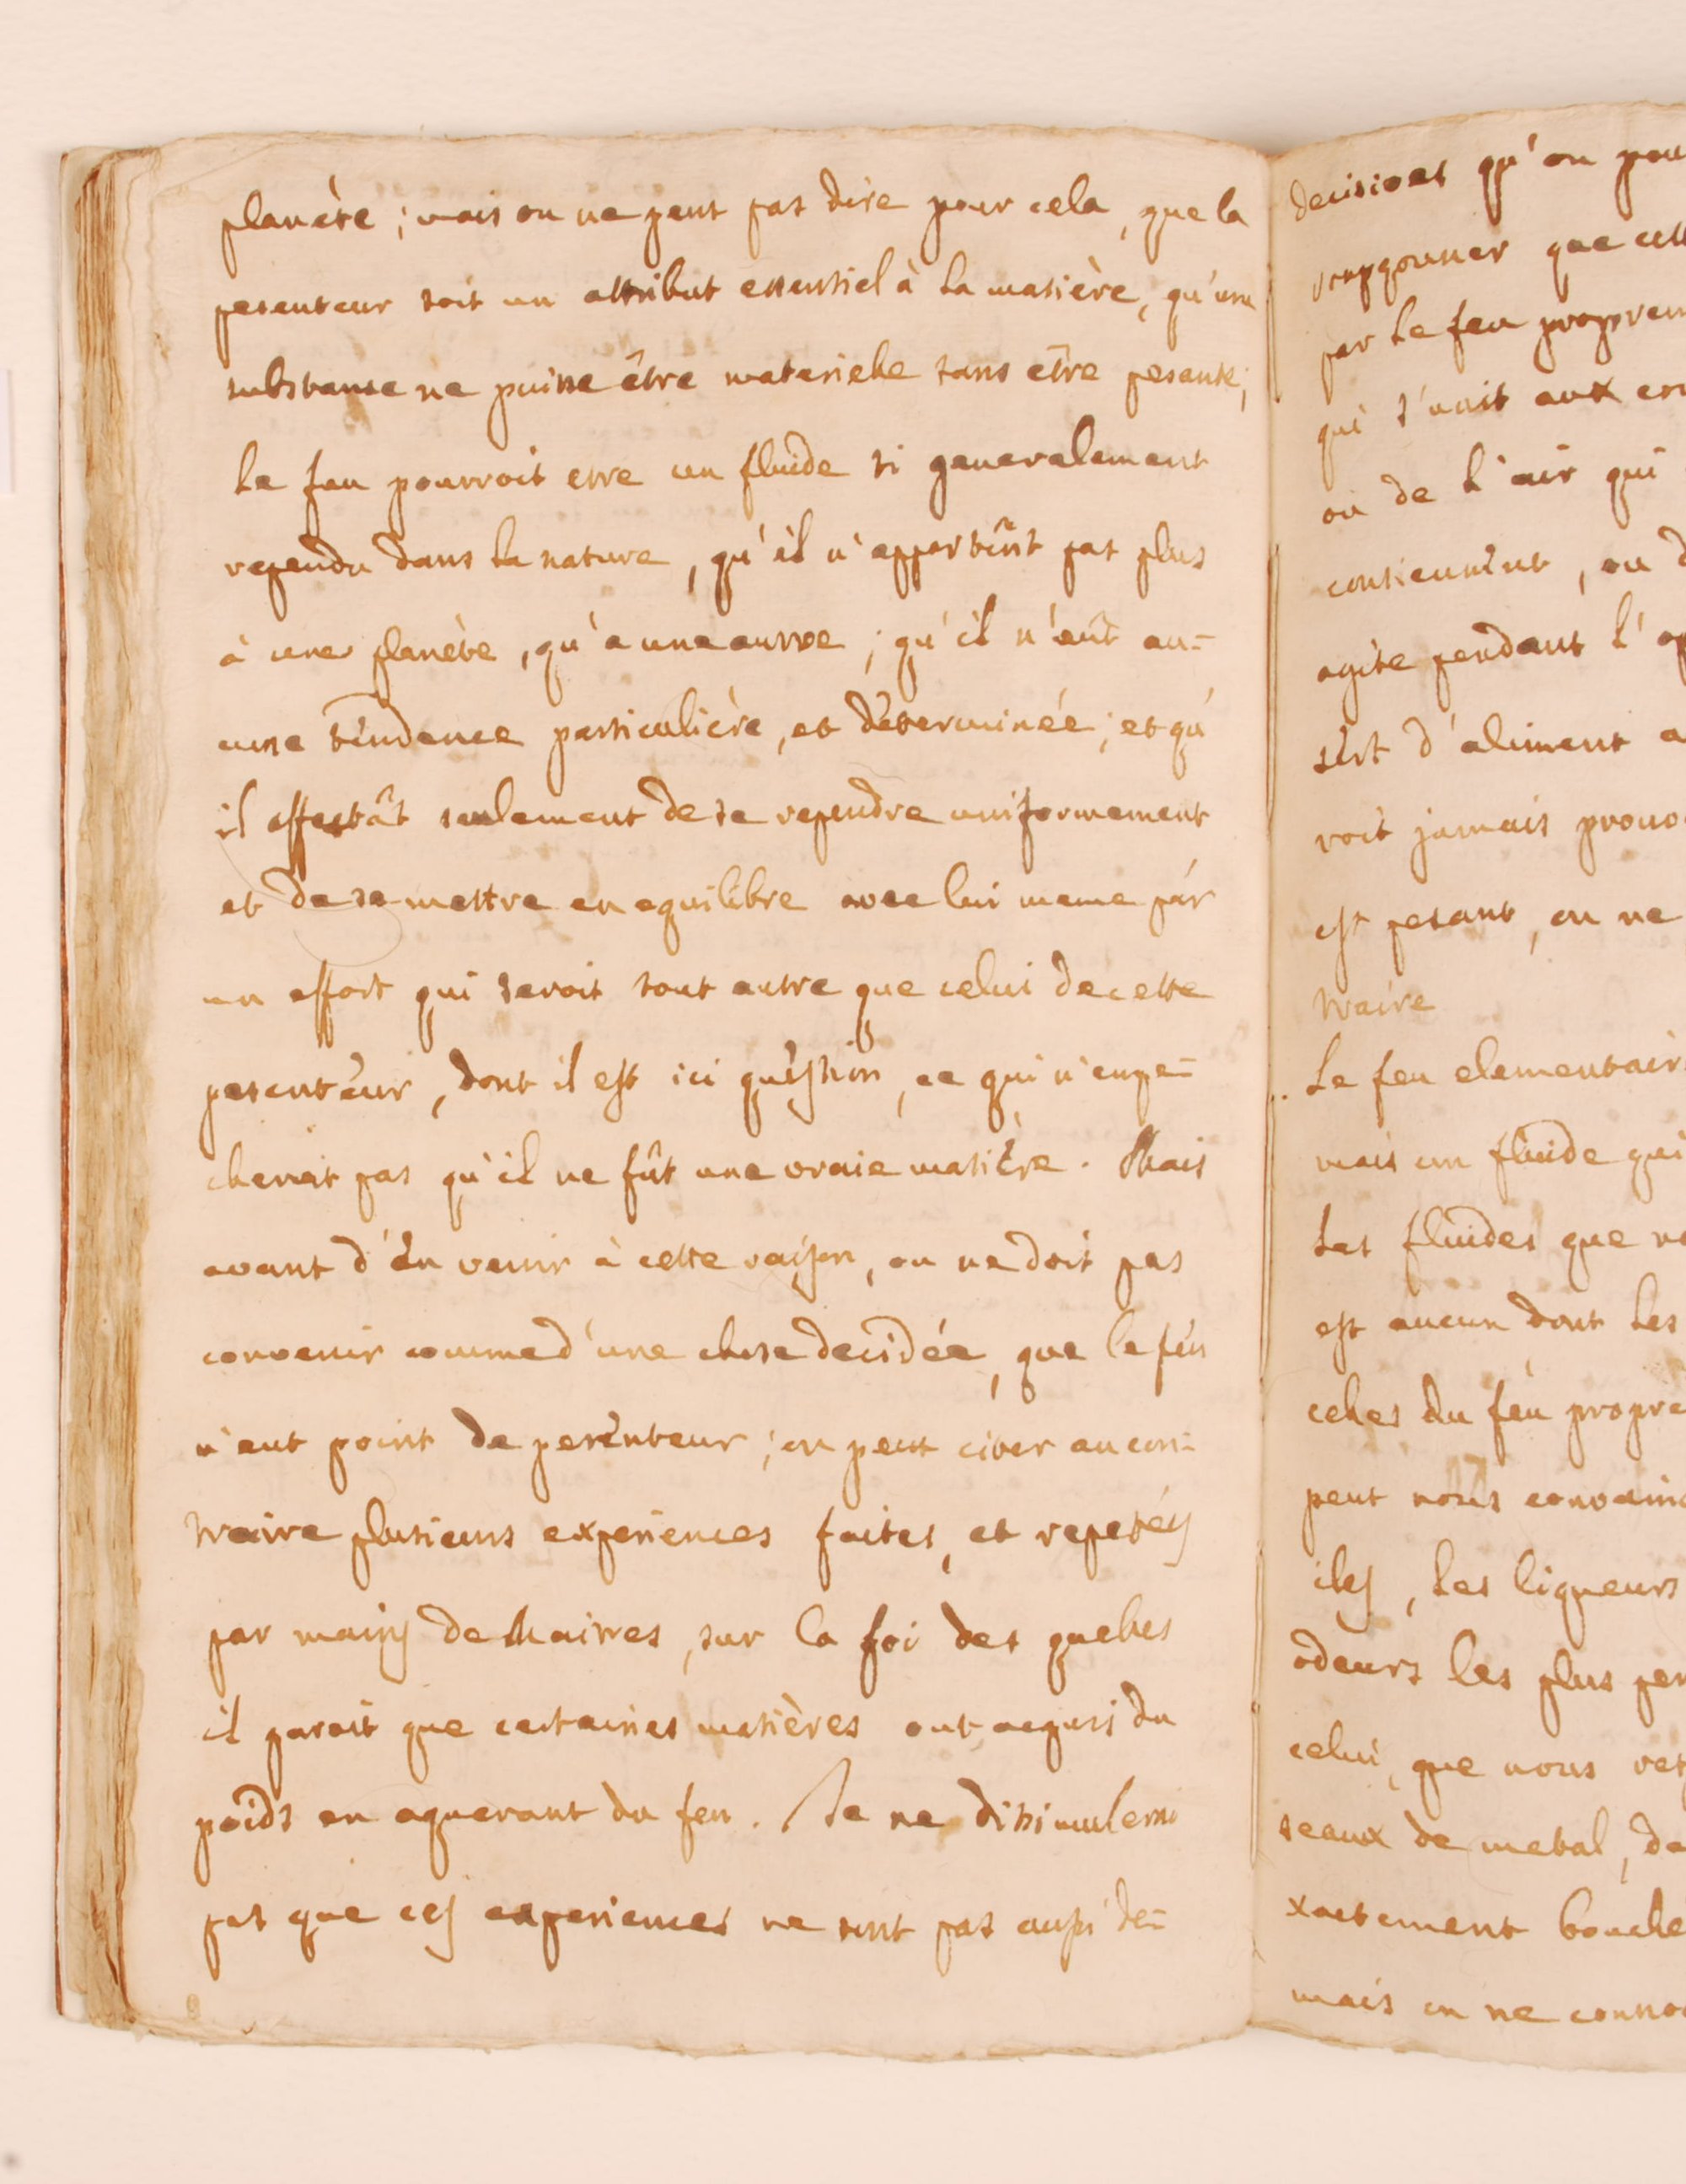 planète ; mais on ne peut pas dire pour cela, que la
pesenteur soit un attribut essentiel à la matière, qu'une
substance ne puisse être materielle sans etre pesante ;
le feu pourroit etre un fluide si generalement
rependu dans la nature, qu'il n'appartînt pas plus
à une planète, qu'a une autre ; qu'il n'eût au=
cune tendence particulière, et déterminée ; et qu'
il affectât seulement de se rependre uniformement
et de se mettre en equilibre avec lui meme par
un effort qui seroit tout autre que celui de cette
pesenteur, dont il est ici question, ce qui n'empe=
cheroit pas qu'il ne fût une vraie matière. Mais
avant d'en venir à cette raison, on ne doit pas
convenir comme d'une chose decidée, que le feu
n'eut point de pesenteur ; on peut citer au con=
traire plusieurs experiences faites, et repetées
par mains de Maitres, sur la foi des quelles
il paroit que certaines matières ont acquis du
poids en aquerant du feu. Je ne dissimulerai
pas que ces experiences ne sont pas aussi de=
decisives qu'on pou
soupçonner que cett
par le feu proprem
qui s'unit aux cor
ou de l'air qui
contiennent, ou d
agite pendant l'op
sert d'aliment a
roit jamais prouv
est pesant, on ne
traire
Le feu elementair
mais un fluide qui
Les fluides que no
est aucun dont les
celles du feu propre
peut nous convainc
iles, les liqueurs
odeurs les plus pen
celui, que nous ret
seaux de metal, de
xactement bouche
mais on ne conno